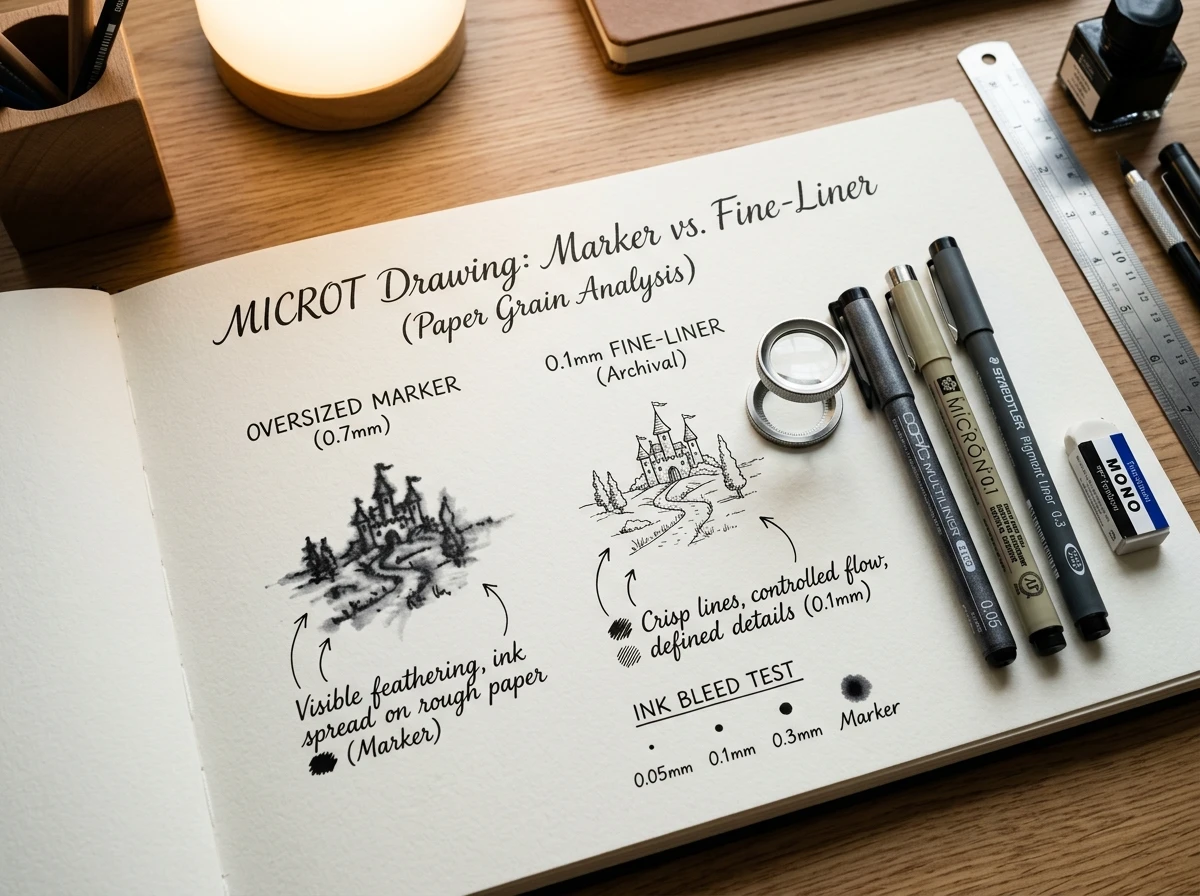 MICROT Drawing: Marker vs. Fine-Liner
(Paper Grain Analysis)
OVERSIZED MARKER
(0.7mm)
0.1mm FINE-LINER
(Archival)
Visible feathering, ink
spread on rough paper
(Marker)
Crisp lines, controlled flow,
defined details (0.1mm)
INK BLEED TEST
0.05mm
0.1mm
0.3mm
Marker
COPIC MULTILINER
0.05
MICRON 0.1
STAEDTLER Pigment Liner 0.3
MONO